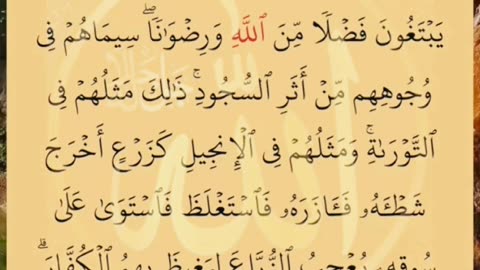 يَبۡتَغُونَ فَضۡلٗا مِّنَ ٱللَّهِ وَرِضۡوَٰنٗاۖ سِيمَاهُمۡ فِي
وُجُوهِهِم مِّنۡ أَثَرِ ٱلسُّجُودِۚ ذَٰلِكَ مَثَلُهُمۡ فِي
ٱلتَّوۡرَىٰةِۚ وَمَثَلُهُمۡ فِي ٱلۡإِنجِيلِ كَزَرۡعٍ أَخۡرَجَ
شَطۡـَٔهُۥ فَـَٔازَرَهُۥ فَٱسۡتَغۡلَظَ فَٱسۡتَوَىٰ عَلَىٰ
سُوقِهِۦ يُعۡجِبُ ٱلزُّرَّاعَ لِيَغِيظَ بِهِمُ ٱلۡكُفَّارَۗ